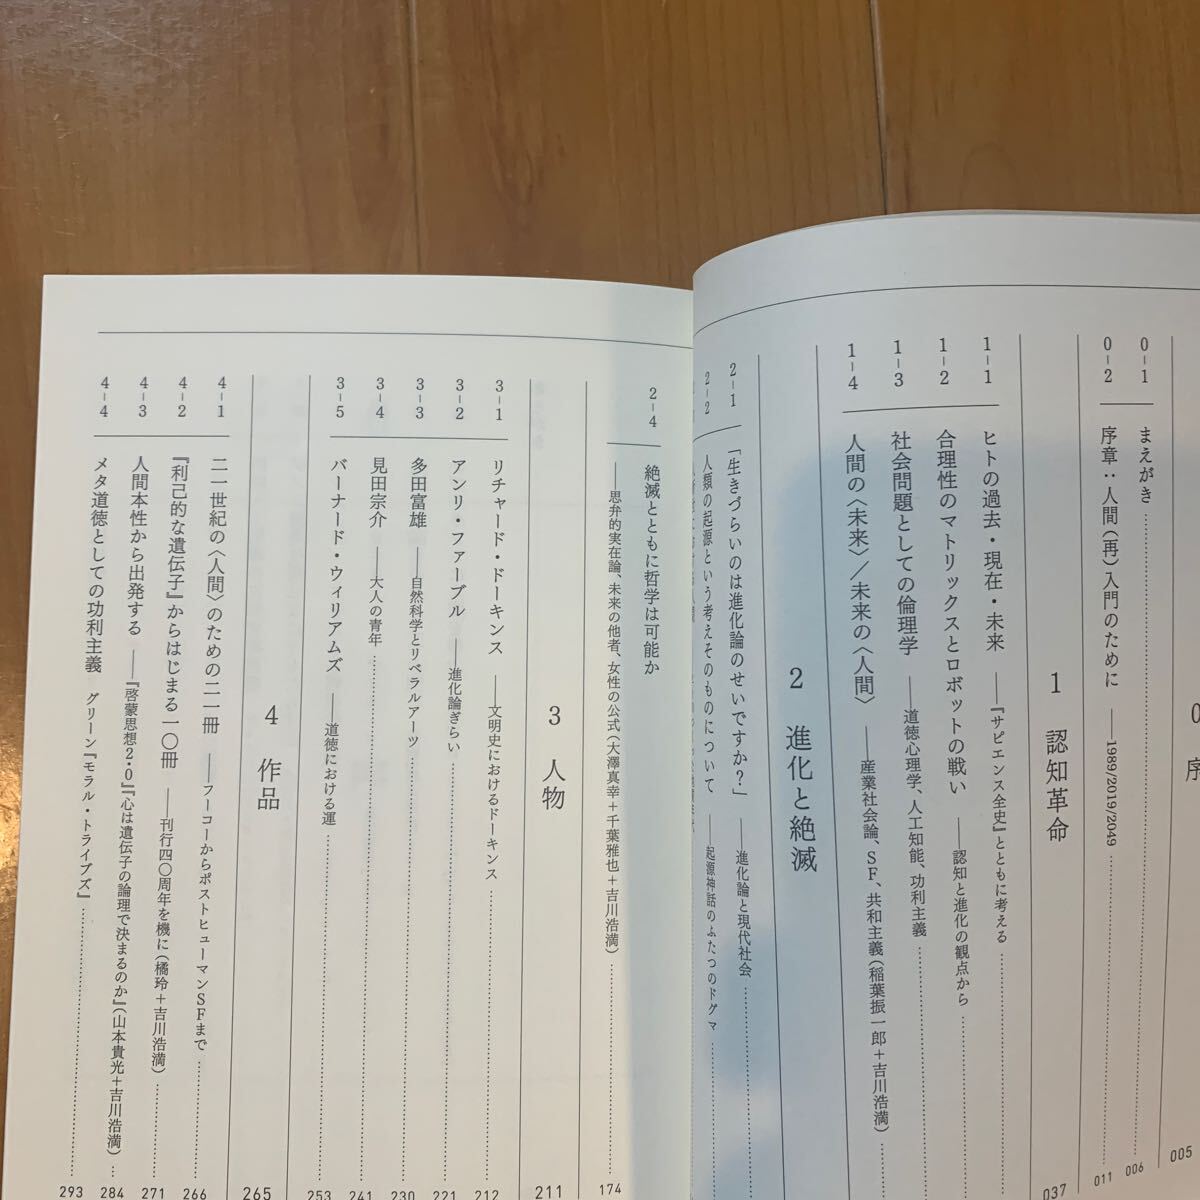 0 序 005
0-1 まえがき 006
0-2 序章:人間(再)入門のために ——1989/2019/2049 011
1 認知革命 037
1-1 ヒトの過去・現在・未来 ——『サピエンス全史』とともに考える
1-2 合理性のマトリックスとロボットの戦い ——認知と進化の観点から
1-3 社会問題としての倫理学 ——道徳心理学、人工知能、功利主義
1-4 人間の〈未来〉/未来の〈人間〉 ——産業社会論、SF、共和主義(稲葉振一郎+吉川浩満)
2 進化と絶滅
2-1 「生きづらいのは進化論のせいですか?」 ——進化論と現代社会
2-2 人類の起源という考えそのものについて ——起源神話のふたつのドグマ
2-4 絶滅とともに哲学は可能か
——思弁的実在論、未来の他者、女性の公式(大澤真幸+千葉雅也+吉川浩満) 174
3 人物 211
3-1 リチャード・ドーキンス ——文明史におけるドーキンス 212
3-2 アンリ・ファーブル ——進化論ぎらい 221
3-3 多田富雄 ——自然科学とリベラルアーツ 230
3-4 見田宗介 ——大人の青年 241
3-5 バーナード・ウィリアムズ ——道徳における運 253
4 作品 265
4-1 二一世紀の〈人間〉のための二一冊 ——フーコーからポストヒューマンSFまで 266
4-2 『利己的な遺伝子』からはじまる一〇冊 ——刊行四〇周年を機に(橘玲+吉川浩満) 271
4-3 人間本性から出発する ——『啓蒙思想2.0』『心は遺伝子の論理で決まるのか』(山本貴光+吉川浩満) 284
4-4 メタ道徳としての功利主義 グリーン『モラル・トライブズ』 293